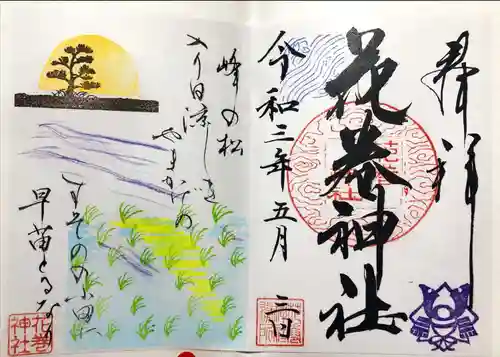 奉拝
花巻神社
令和三年五月 三日
峰の松
入り日涼しき
やまかげの
すその丶小田に
早苗とるなり
花巻
神社